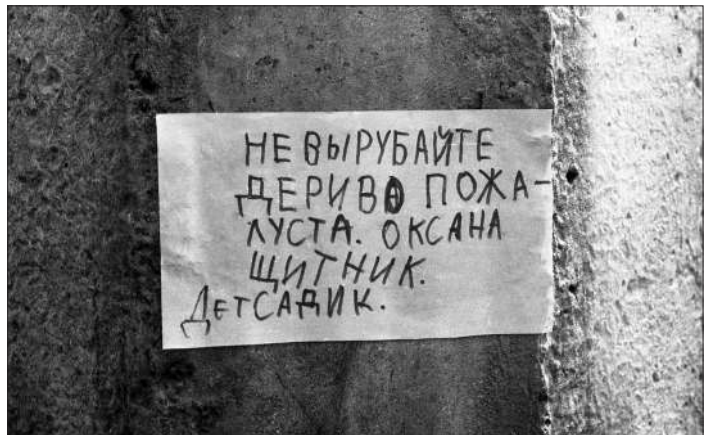 НЕ ВЫРУБАЙТЕ
ДЕРИВО ПОЖА-
ЛУСТА. ОКСАНА
ЩИТНИК.
ДЕТСАДИК.